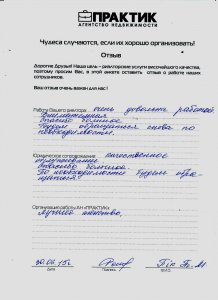 ПРАКТИК
АГЕНТСТВО НЕДВИЖИМОСТИ
Чудеса случаются, если их хорошо организовать!
Отзыв
Дорогие Друзья! Наша цель - риэлторские услуги высочайшего качества,
поэтому просим Вас, в этой анкете оставить отзыв о работе наших
сотрудников.
Ваш отзыв очень важен для нас!
Работа Вашего риелтора: очень довольны работой
Внимательная
Спасибо большое.
Будем обращаться снова по
необходимости.
Юридическое сопровождение качественное
Спасибо большое.
По необходимости будем обра-
щаться!
Организация работы АН «ПРАКТИК»
лучшее агентство,
Дата
Подпись
Ф.И.О.